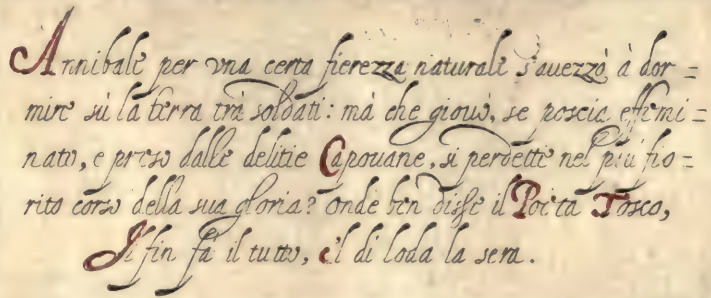 Annibale per vna certa fierezza naturale s'auezzò à dor=
mire sù la terra trà soldati: mà che giouò, se poscia effemi=
nato, e preso dalle delitie Capouane, si perdette nel più fio=
rito corso della sua gloria? onde ben disse il Poeta Tosco,
Il fin fà il tutto, e'l di loda la sera.